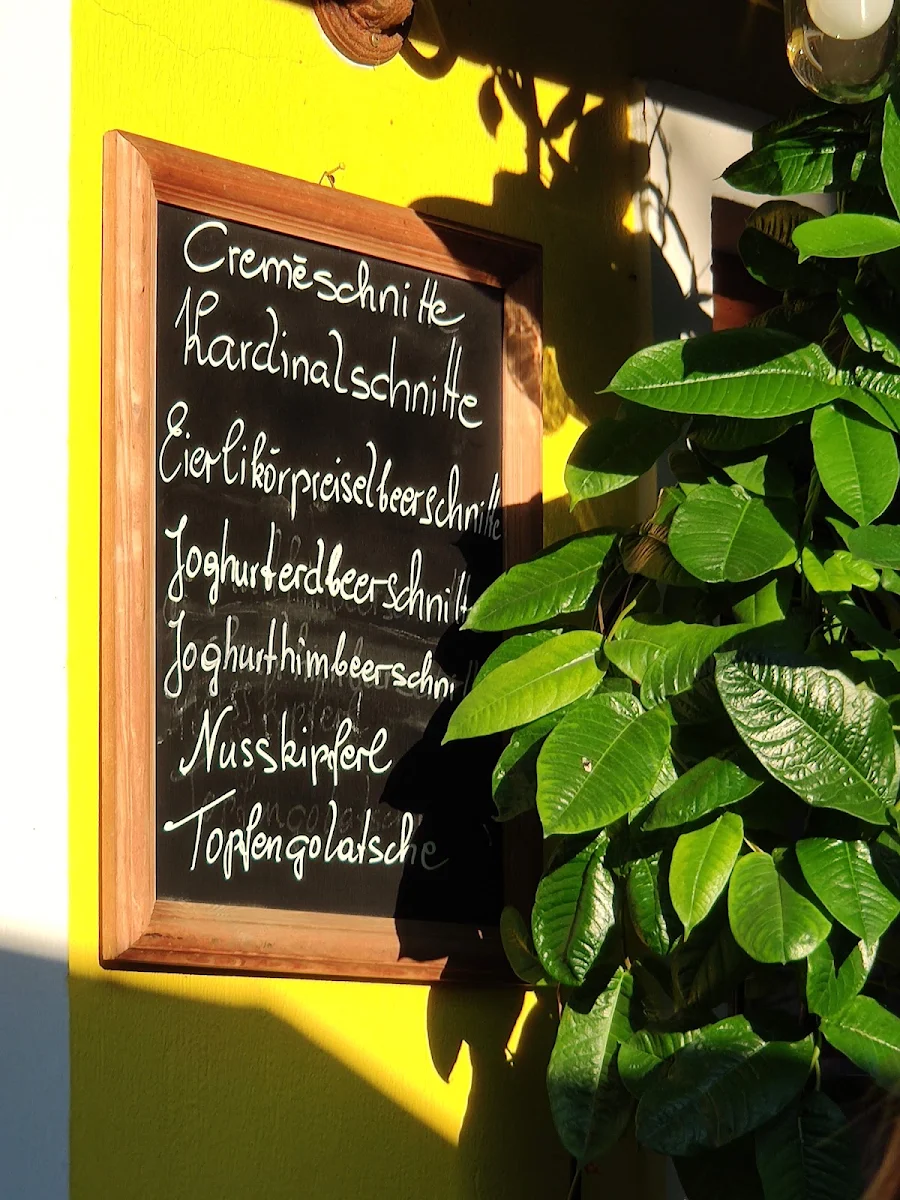 Cremēschnitte
Kardinalschnitte
Eierlikörpreiselbeerschnitte
Joghurterdbeerschnitt
Joghurthimbeerschnitt
Nusskipferl
Topfengolatsche